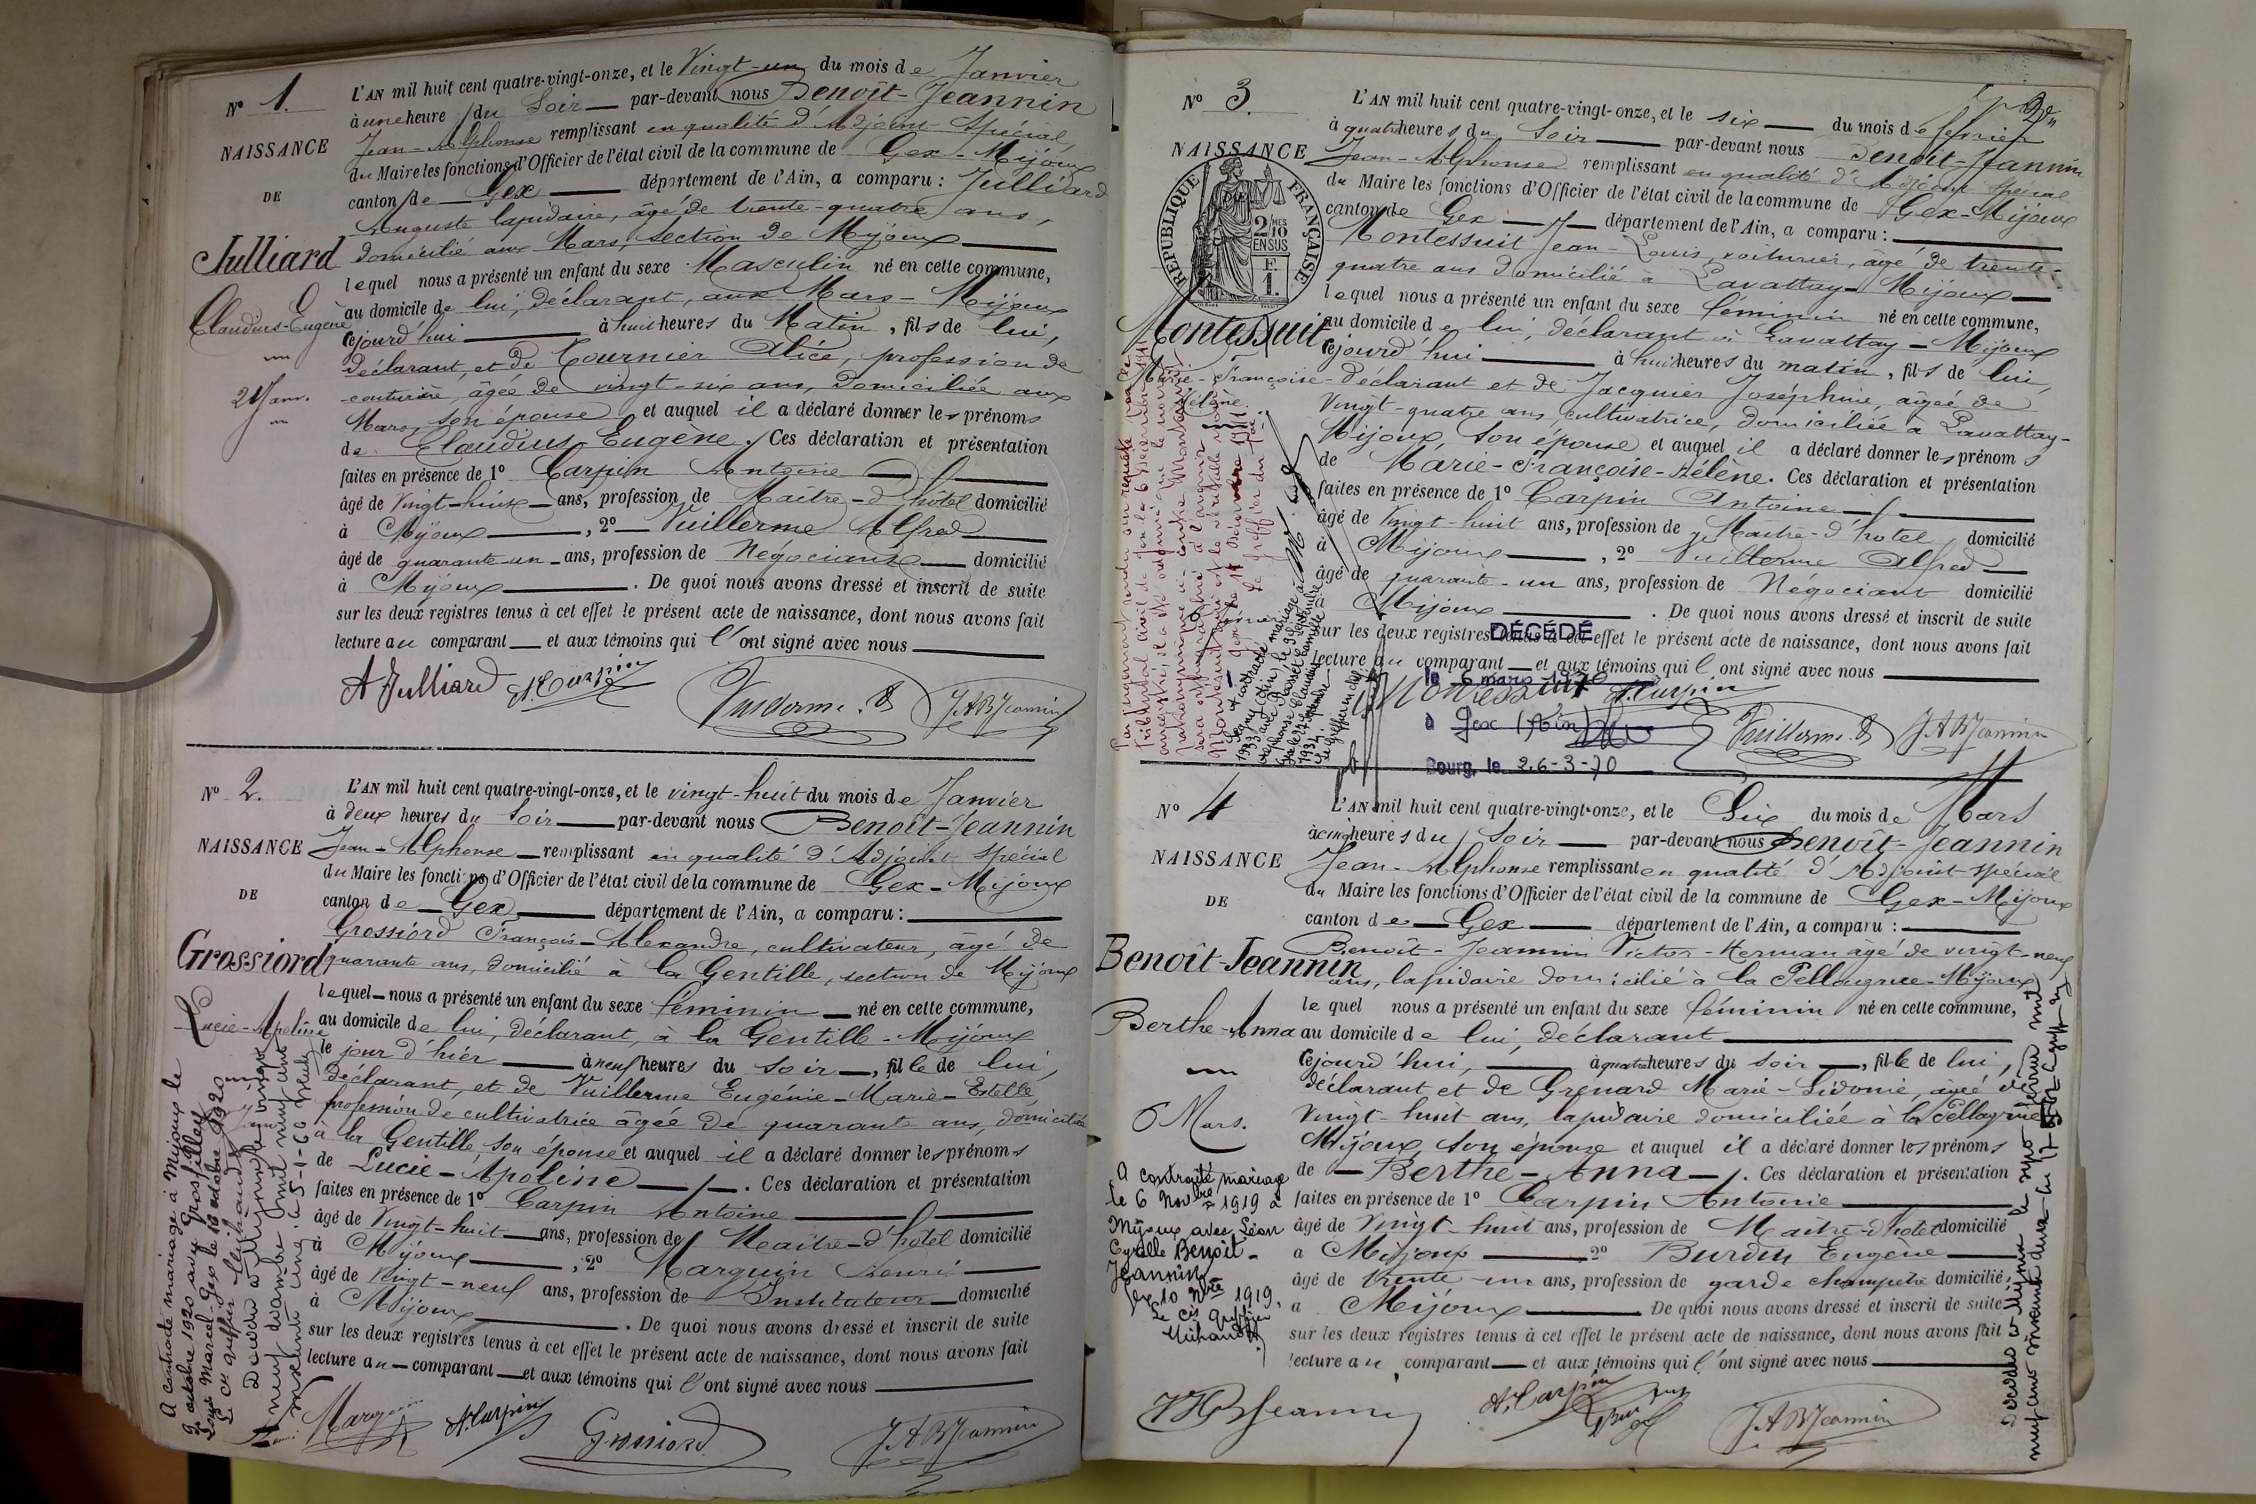 N° 1.
NAISSANCE
DE
Julliard
Claudius-Eugène
21 Janv.
L'AN mil huit cent quatre-vingt-onze, et le Vingt-un du mois de Janvier
à une heure du Soir par-devant nous Benoît-Jeannin
Jean-Alphonse remplissant en qualité d'Adjoint Spécial
du Maire les fonctions d'Officier de l'état civil de la commune de Gex-Mijoux
canton de Gex département de l'Ain, a comparu : Julliard
Auguste lapidaire, âgé de trente-quatre ans,
domicilié aux Mars, section de Mijoux
lequel nous a présenté un enfant du sexe Masculin né en cette commune,
au domicile de lui, déclarant, aux Mars-Mijoux
cejourd'hui à huit heures du Matin, fils de lui,
déclarant, et de Tournier Alice, profession de
couturière, âgée de vingt-six ans, domiciliée aux
Mars, son épouse et auquel il a déclaré donner les prénoms
de Claudius Eugène. Ces déclaration et présentation
faites en présence de 1° Carpin Antoine
âgé de Vingt-huit ans, profession de Maître-d'hôtel domicilié
à Mijoux, 2° Vuillerme Alfred
âgé de quarante-un ans, profession de Négociant domicilié
à Mijoux. De quoi nous avons dressé et inscrit de suite
sur les deux registres tenus à cet effet le présent acte de naissance, dont nous avons fait
lecture au comparant et aux témoins qui l'ont signé avec nous
A Julliard A. Carpin Vuillerme. A JABJeannin
N° 2.
NAISSANCE
DE
Grossiord
Lucie-Apoline
L'AN mil huit cent quatre-vingt-onze, et le vingt-huit du mois de Janvier
à deux heures du Soir par-devant nous Benoît-Jeannin
Jean-Alphonse remplissant en qualité d'Adjoint Spécial
du Maire les fonctions d'Officier de l'état civil de la commune de Gex-Mijoux
canton de Gex département de l'Ain, a comparu :
Grossiord François-Alexandre, cultivateur, âgé de
quarante ans, domicilié à la Gentille, section de Mijoux
lequel nous a présenté un enfant du sexe féminin né en cette commune,
au domicile de lui, déclarant, à la Gentille-Mijoux
le jour d'hier à neuf heures du Soir, fille de lui,
déclarant, et de Vuillerme Eugénie-Marie-Estelle,
profession de cultivatrice âgée de quarante ans, domiciliée
à la Gentille son épouse et auquel il a déclaré donner les prénoms
de Lucie-Apoline. Ces déclaration et présentation
faites en présence de 1° Carpin Antoine
âgé de Vingt-huit ans, profession de Maître-d'hôtel domicilié
à Mijoux, 2° Marquin Henri
âgé de vingt-neuf ans, profession de Instituteur domicilié
à Mijoux. De quoi nous avons dressé et inscrit de suite
sur les deux registres tenus à cet effet le présent acte de naissance, dont nous avons fait
lecture au comparant et aux témoins qui l'ont signé avec nous
A contracté mariage à Mijoux le
9 octobre 1920 avec Grosfilley
Louis Marcel. Gex le 18 octobre 1920
Marquin A. Carpin Grossiord JABJeannin
N° 3.
NAISSANCE
RÉPUBLIQUE FRANÇAISE
2/10
EN SUS
F.
1.
Montessuit
Marie-Françoise-
Hélène
L'AN mil huit cent quatre-vingt-onze, et le six du mois de février
à quatre heures du Soir par-devant nous Benoît-Jeannin
Jean-Alphonse remplissant en qualité d'Adjoint Spécial
du Maire les fonctions d'Officier de l'état civil de la commune de Gex-Mijoux
canton de Gex département de l'Ain, a comparu :
Montessuit Jean-Louis, voiturier, âgé de trente-
quatre ans domicilié à Lavattay-Mijoux
lequel nous a présenté un enfant du sexe féminin né en cette commune,
au domicile de lui, déclarant à Lavattay-Mijoux
cejourd'hui à huit heures du matin, fils de lui,
déclarant et de Jacquier Joséphine, âgée de
Vingt-quatre ans, cultivatrice, domiciliée à Lavattay-
Mijoux, son épouse et auquel il a déclaré donner les prénoms
de Marie-Françoise-Hélène. Ces déclaration et présentation
faites en présence de 1° Carpin Antoine
âgé de Vingt-huit ans, profession de Maître-d'hôtel domicilié
à Mijoux, 2° Vuillerme Alfred
âgé de quarante-un ans, profession de Négociant domicilié
à Mijoux. De quoi nous avons dressé et inscrit de suite
sur les deux registres tenus à cet effet le présent acte de naissance, dont nous avons fait
lecture au comparant et aux témoins qui l'ont signé avec nous
DÉCÉDÉ
le 6 mars 1970
à Gex (Ain)
Bourg, le 26-3-70
Montessuit A. Carpin Vuillerme. A JABJeannin
N° 4
NAISSANCE
DE
Benoît-Jeannin
Berthe-Anna
6 Mars.
A contracté mariage
le 6 Novbre 1919 à
Mijoux avec Léon
Cyrille Benoît-
Jeannin
Gex 10 Nbre 1919.
Le cis Greffier
L'AN mil huit cent quatre-vingt-onze, et le Six du mois de Mars
à cinq heures du Soir par-devant nous Benoît-Jeannin
Jean-Alphonse remplissant en qualité d'Adjoint Spécial
du Maire les fonctions d'Officier de l'état civil de la commune de Gex-Mijoux
canton de Gex département de l'Ain, a comparu :
Benoît-Jeannin Victor-Herman âgé de vingt-neuf
ans, lapidaire domicilié à la Pellagrue-Mijoux
lequel nous a présenté un enfant du sexe féminin né en cette commune,
au domicile de lui, déclarant
cejourd'hui, à quatre heures du soir, fille de lui,
déclarant et de Grenard Marie-Sidonie, âgée de
Vingt-huit ans, lapidaire domiciliée à la Pellagrue
Mijoux, son épouse et auquel il a déclaré donner les prénoms
de Berthe-Anna. Ces déclaration et présentation
faites en présence de 1° Carpin Antoine
âgé de Vingt-huit ans, profession de Maître-d'hôtel domicilié
à Mijoux 2° Burdin Eugène
âgé de trente-un ans, profession de garde champêtre domicilié
à Mijoux De quoi nous avons dressé et inscrit de suite
sur les deux registres tenus à cet effet le présent acte de naissance, dont nous avons fait
lecture au comparant et aux témoins qui l'ont signé avec nous
VHBJeannin A. Carpin JABJeannin